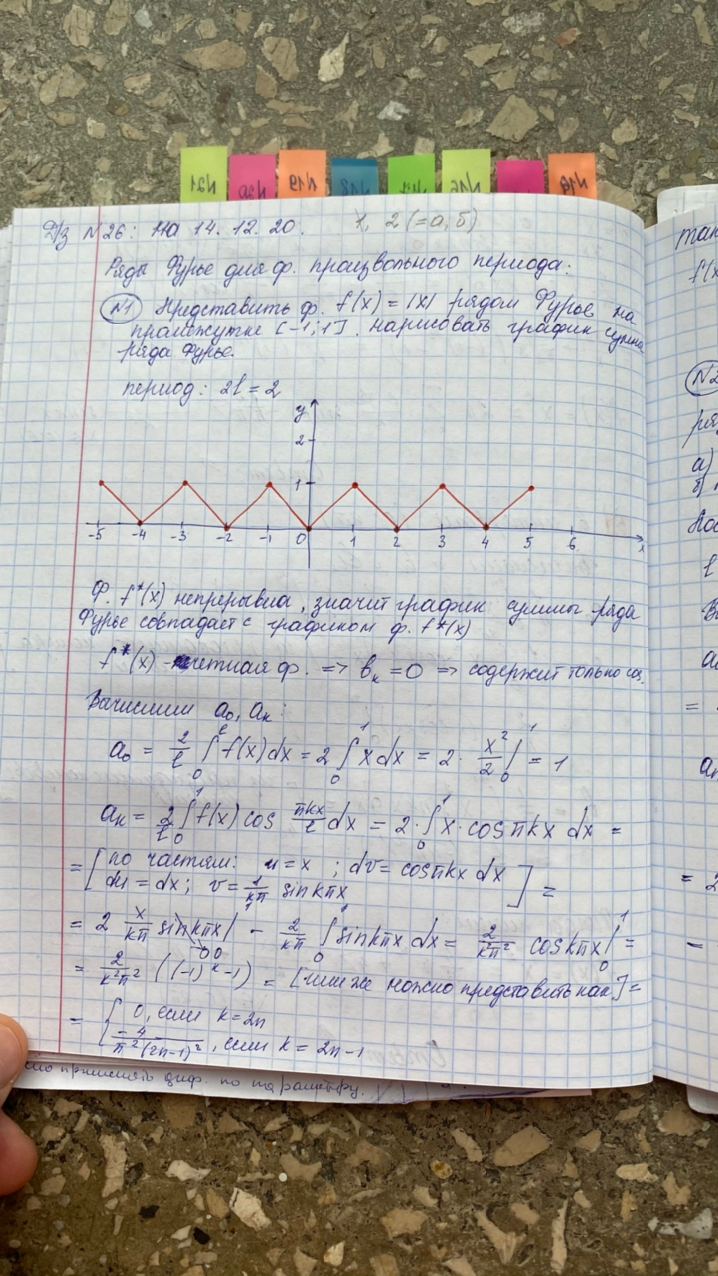 N21 N20 N19 N18 N16
Д/з N26: на 14.12.20. 1, 2(=а,б)
Ряды Фурье для ф. произвольного периода:
N1 Представить ф. f(x) = |x| рядом Фурье на
промежутке [-1;1]. нарисовать график суммы
ряда Фурье.
период: 2l = 2
y
2
1
-5 -4 -3 -2 -1 0 1 2 3 4 5 6 x
Ф. f*(x) непрерывна, значит график суммы ряда
Фурье совпадает с графиком ф. f*(x)
f*(x) - четная ф. => bₖ = 0 => содержит только cos.
Вычислим a₀, aₖ:
a₀ = 2/l ∫₀ˡ f(x)dx = 2 ∫₀¹ x dx = 2 · x²/2 |₀¹ = 1
aₖ = 2/l ∫₀¹ f(x) cos πkx/l dx = 2 · ∫₀¹ x · cos πkx dx =
= [по частям: u = x ; dv = cos πkx dx
du = dx; v = 1/kπ sin kπx] =
= 2 x/kπ sin kπx |₀¹ - 2/kπ ∫₀¹ sin kπx dx = 2/kπ² cos kπx |₀¹ =
= 2/k²π² ((-1)ᵏ - 1) = [или же можно представить как] =
= { 0, если k = 2n
-4/π²(2n-1)², если k = 2n-1
диф. по параметру.
f(x
N2
а)
б)